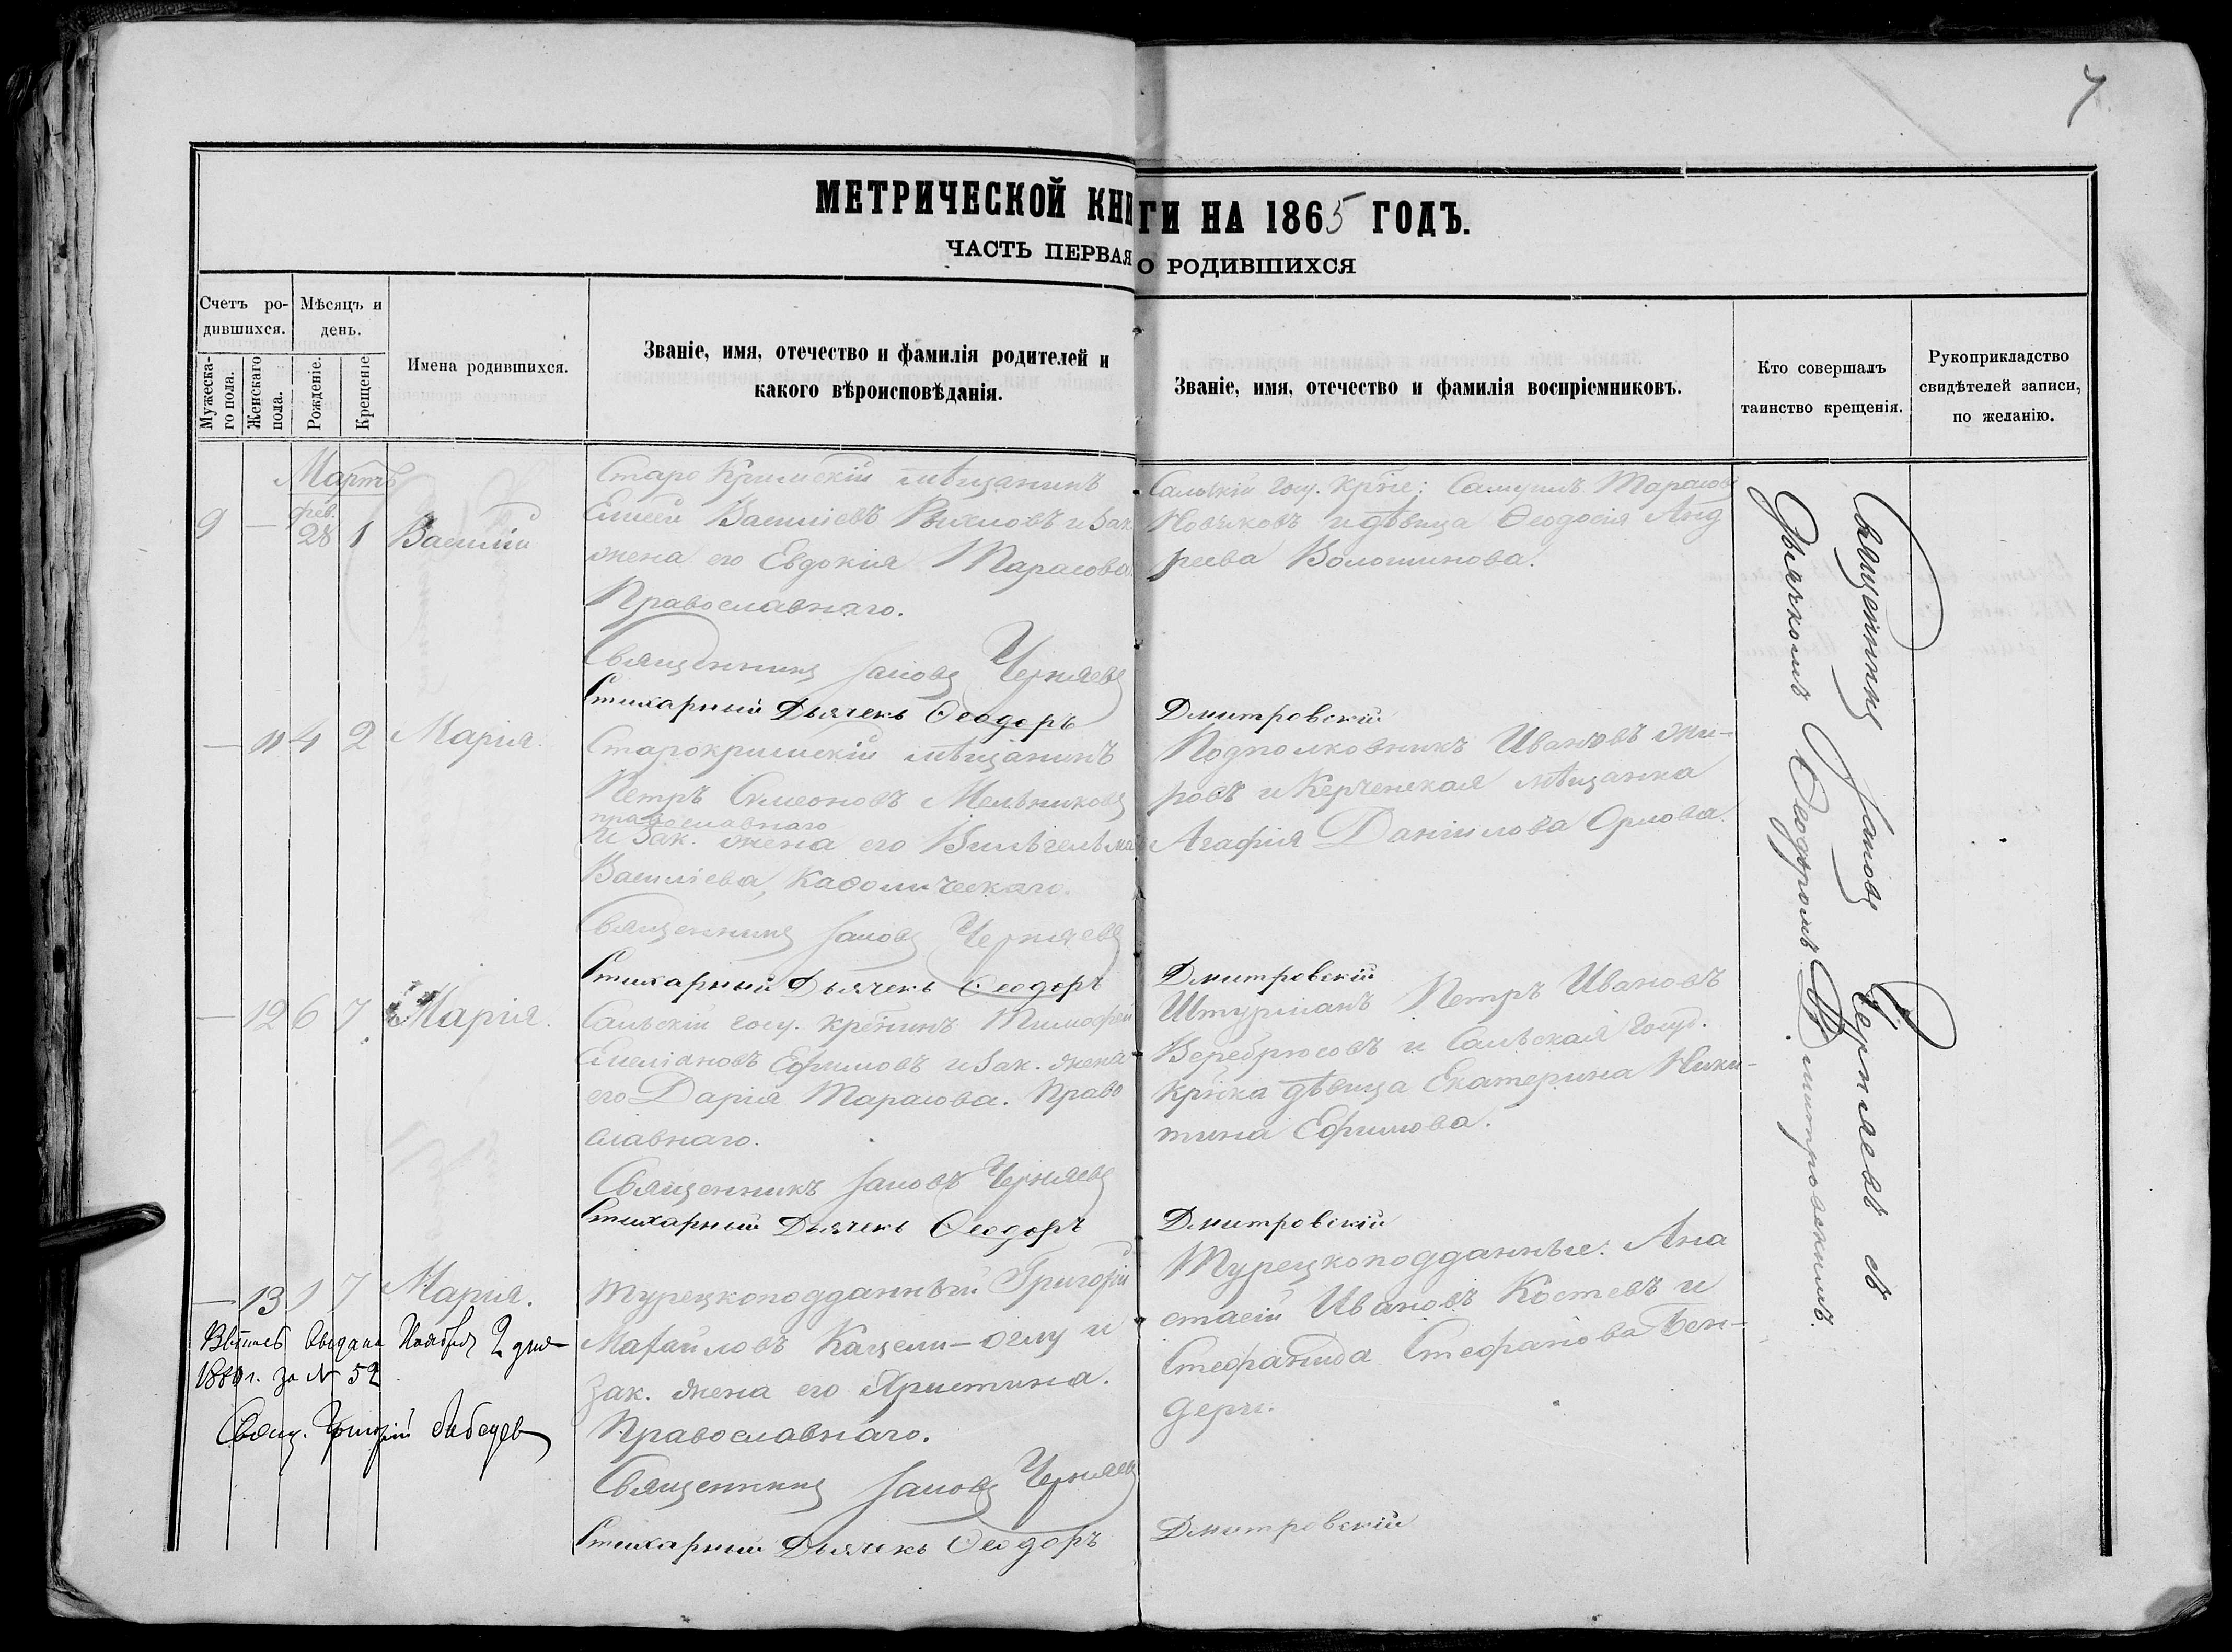 7
МЕТРИЧЕСКОЙ КНИГИ НА 1865 ГОДЪ.
ЧАСТЬ ПЕРВАЯ О РОДИВШИХСЯ
Счетъ ро-
дившихся.
Мужеска-
го пола.
Женскаго
пола.
Мѣсяцъ и
день.
Рожденіе.
Крещеніе
Имена родившихся.
Званіе, имя, отечество и фамилія родителей и
какого вѣроисповѣданія.
Званіе, имя, отечество и фамилія воспріемниковъ.
Кто совершалъ
таинство крещенія.
Рукоприкладство
свидѣтелей записи,
по желанію.
Мартъ
9 — фев. 28 1 Василій
Старо Кримскій мѣщанинъ
Елисей Васильевъ и Зак.
жена его Евдокія Тарасова
Православнаго.
Священникъ Іаковъ Черняевъ
Стихарный Дьячекъ Ѳеодоръ Дмитровскій
Сальскій госу. кр҃не: Самуилъ Тарасовъ
Новиковъ и дѣвица Ѳеодосія Анд
реева Волошинова.
— 11 4 2 Марія.
Старокримскій мѣщанинъ
Петръ Симеоновъ Мельниковъ
православнаго
и Зак. жена его Вильгельма
Васильева, Каѳолическаго.
Священникъ Іаковъ Черняевъ
Стихарный Дьячекъ Ѳеодоръ Дмитровскій
Подполковникъ Ивановъ Жи-
ровъ и Керченская мѣщанка
Агафія Даніилова Орлова.
— 12 6 7 Марія.
Сальскій госу. крестнинъ Тимофей
Емеліановъ Ефимовъ и Зак. жена
его Дарія Тарасова. Право
славнаго.
Священникъ Іаковъ Черняевъ
Стихарный Дьячекъ Ѳеодоръ Дмитровскій
Штурманъ Петръ Ивановъ
Веребрюсовъ и Сальская госуд.
кр҃нка дѣвица Екатерина Ники-
тина Ефимова.
— 13 1 7 Марія.
Турецкоподданный Григорій
Михайловъ Кацели-оглу и
Зак. жена его Христина.
Православнаго.
Священникъ Іаковъ Черняевъ
Стихарный Дьячекъ Ѳеодоръ Дмитровскій
Турецкоподданные: Ана
стасій Ивановъ Костевъ и
Стефанида Стефанова Бен-
дерли.
Выпись выдана Ноября 2 дня
188 г. за № 52
Свящ. Григорій Лебедев
Священникъ Іаковъ Черняевъ съ
Дьячкомъ Ѳеодоромъ Дмитровскимъ.